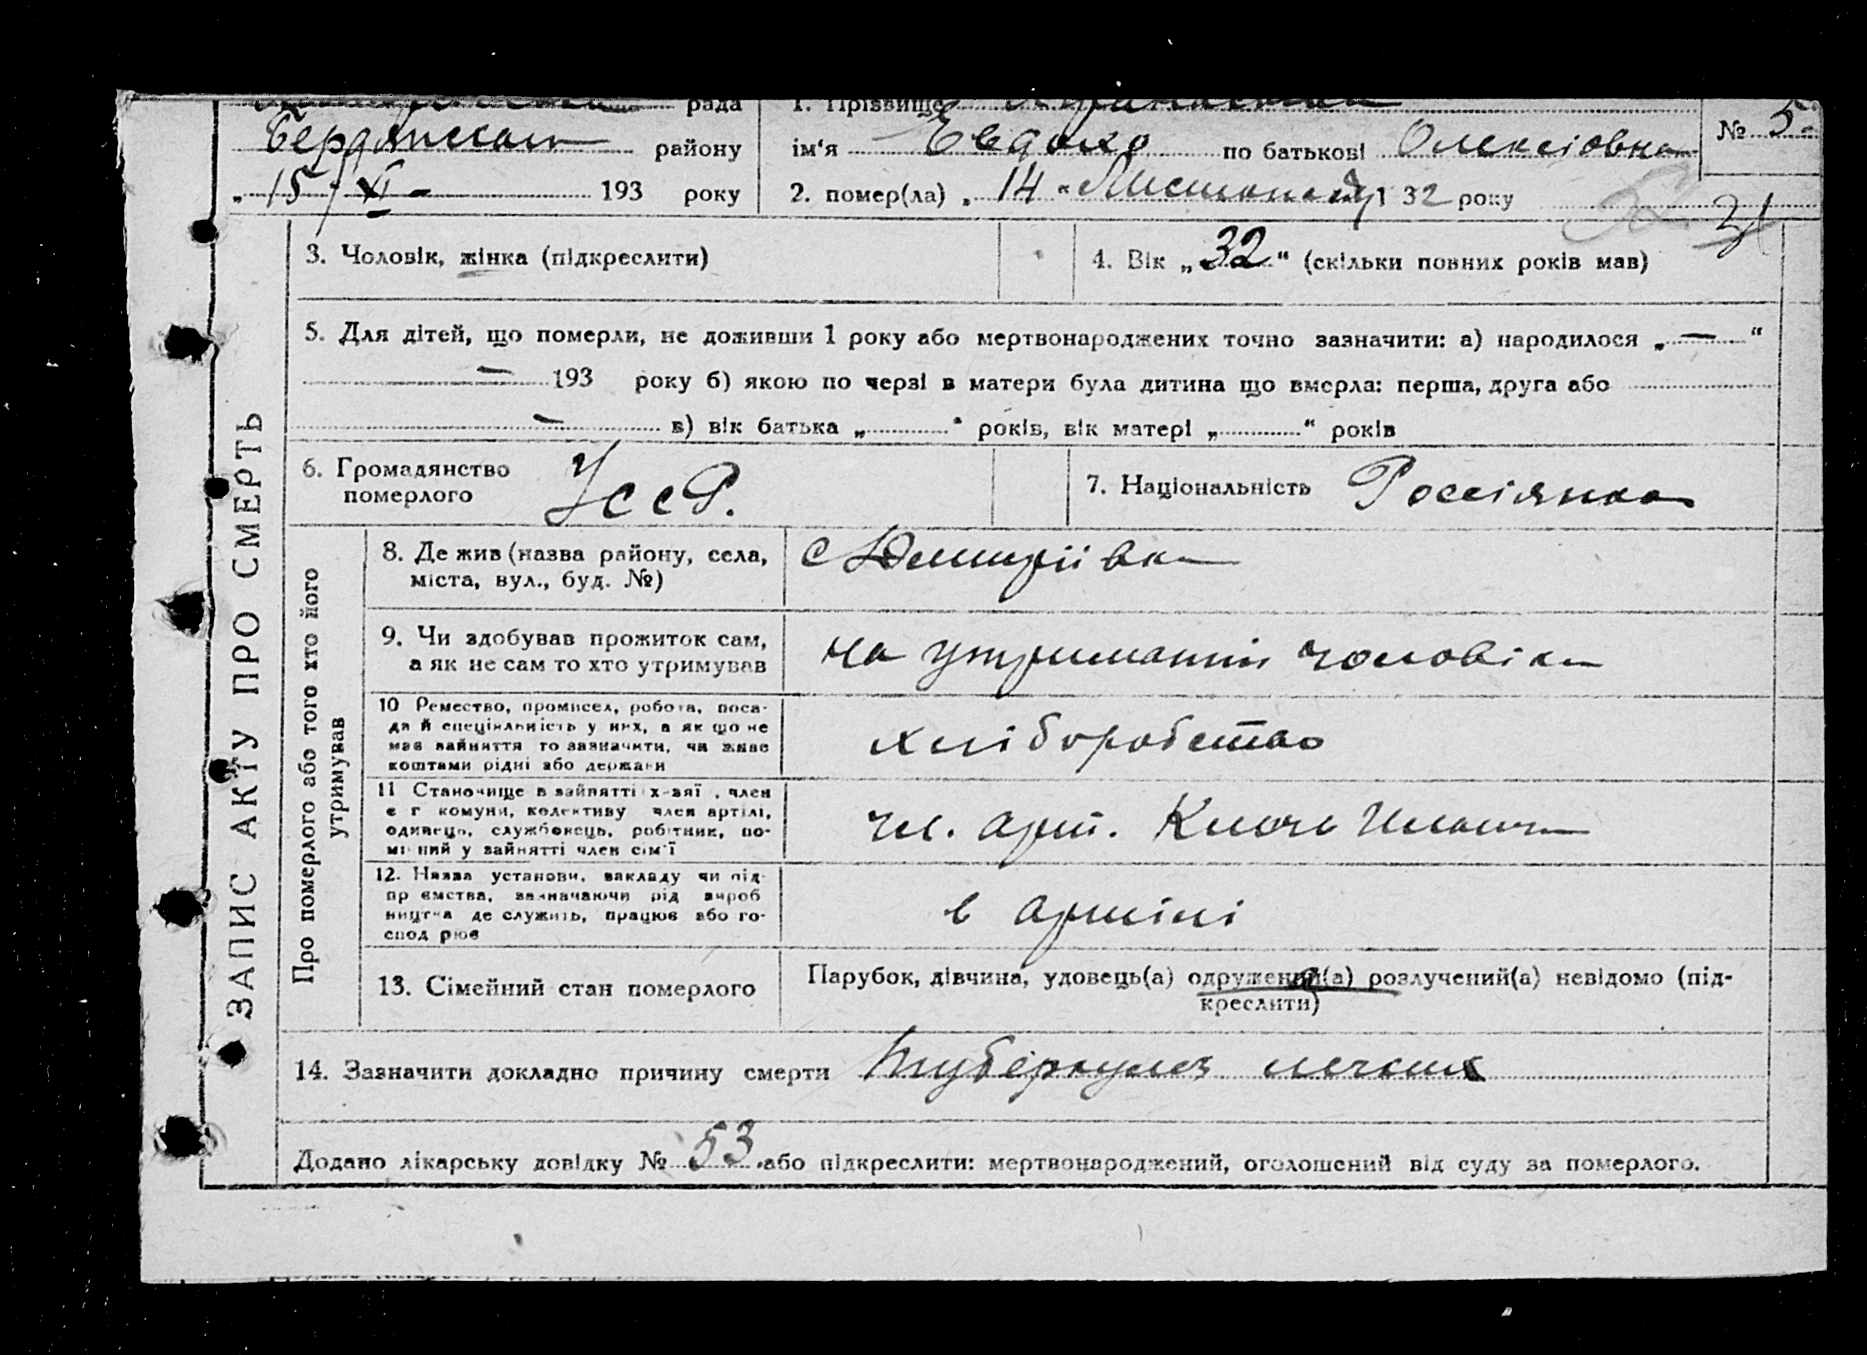 рада 1. Прізвище
Бердянського району ім'я Евдокю по батькові Олексіовна № 5
„ 15/XI - 193 року 2. помер(ла) „ 14 " Листопаду 1932 року
21
3. Чоловік, жінка (підкреслити) 4. Вік „ 32 " (скільки повних років мав)
5. Для дітей, що померли, не доживши 1 року або мертвонароджених точно зазначити: а) народилося „ — "
— 193 року б) якою по черзі в матери була дитина що вмерла: перша, друга або
— в) вік батька „ " років, вік матері „ " років
6. Громадянство померлого УССР. 7. Національність Россіянка
ЗАПИС АКТУ ПРО СМЕРТЬ
Про померлого або того хто його утримував
8. Де жив (назва району, села, міста, вул., буд. №) с Дмитріївка
9. Чи здобував прожиток сам, а як не сам то хто утримував на утриманні чоловіка
10 Ремество, промисел, робота, посада й спеціяльність у них, а як що не мав зайняття то зазначити, чи живе коштами рідні або держави хліборобство
11 Становище в зайнятті х-зяї, член с г комуни, колективу член артілі, одинець, службовець, робітник, помічний у зайнятті член сім'ї чл. арт. Ключ Илыча
12. Назва установи, закладу чи підприємства, зазначаючи рід виробництва де служить, працює або господрює в артілі
13. Сімейний стан померлого Парубок, дівчина, удовець(а) одружений(а) розлучений(а) невідомо (підкреслити)
14. Зазначити докладно причину смерти туберкулез легких
Додано лікарську довідку № 53 або підкреслити: мертвонароджений, оголошений від суду за померлого.